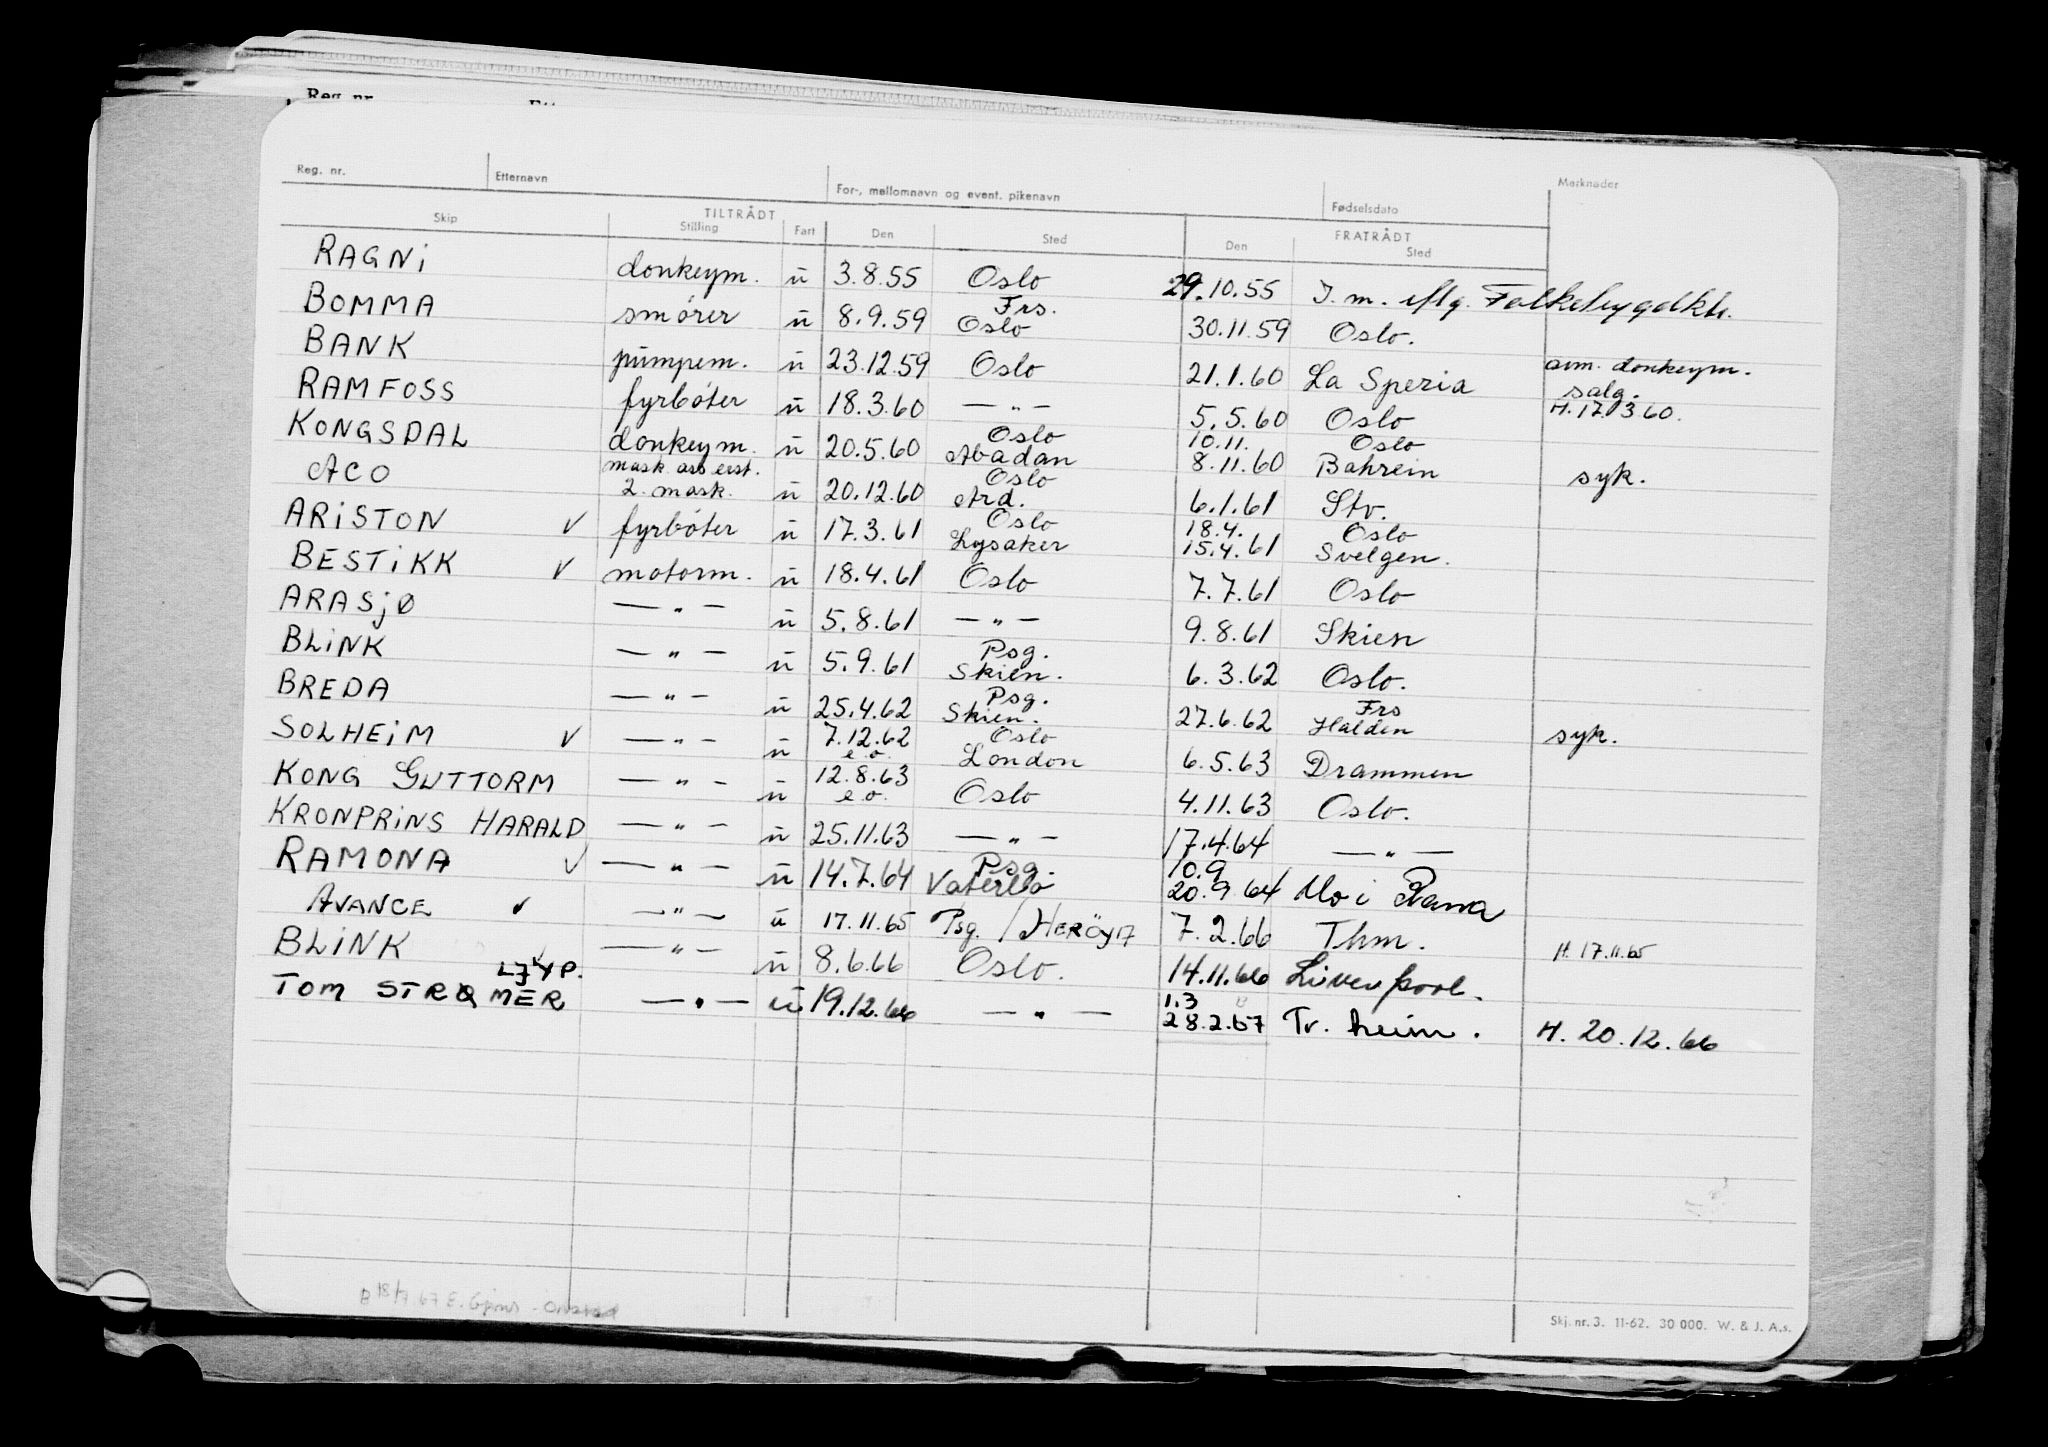 Reg. nr.
Reg. nr. Etternavn For-, mellomnavn og event. pikenavn Fødselsdato Merknader
TILTRÅDT FRATRÅDT
Skip Stilling Fart Den Sted Den Sted
RAGNi donkeym. u 3.8.55 Oslo 29.10.55 I.m. iflg. Folketrygdktr.
Frs.
BOMMA smører u 8.9.59 Oslo 30.11.59 Oslo.
BANK pumpem. u 23.12.59 Oslo 21.1.60 La Spezia anm. donkeym.
salg.
RAMFOSS fyrbøter u 18.3.60 — " — 5.5.60 Oslo H.17.3 60.
Oslo 10.11. Oslo
KONGSDAL donkeym. u 20.5.60 Abadan 8.11.60 Bahrein syk.
mask. ass eist. Oslo
ACO 2. mask. u 20.12.60 Ard. 6.1.61 Stv.
Oslo 18.4. Oslo
ARiSTON ✓ fyrbøter u 17.3.61 Lysaker 15.4.61 Svelgen.
BESTiKK ✓ motorm. u 18.4.61 Oslo 7.7.61 Oslo
ARASjØ — " — u 5.8.61 — " — 9.8.61 Skien
Psg.
BLiNK — " — u 5.9.61 Skien. 6.3.62 Oslo.
Psg. Frs
BREDA — " — u 25.4.62 Skien. 27.6.62 Halden syk.
7.12.62 Oslo
SOLHEiM ✓ — " — u e.o. London 6.5.63 Drammen
12.8.63
KONG GUTTORM — " — u e.o. Oslo 4.11.63 Oslo.
KRONPRiNS HARALD — " — u 25.11.63 — " — 17.4.64 — " —
Psg. 10.9
RAMONA ✓ — " — u 14.7.64 20.9.64 Mo i Rana
AVANCE ✓ — " — u 17.11.65 Psg. / HERÖY 17 7.2.66 Thm. H. 17.11.65
BLiNK — " — u 8.6.66 Oslo. 14.11.66 Liverpool.
LJYP. 1.3
TOM STRØMER — " — u 19.12.66 — " — 28.2.67 Tr. heim. H. 20.12.66
B 18/7.67 E.
Skj. nr. 3. 11-62. 30 000. W. & J. A.s.